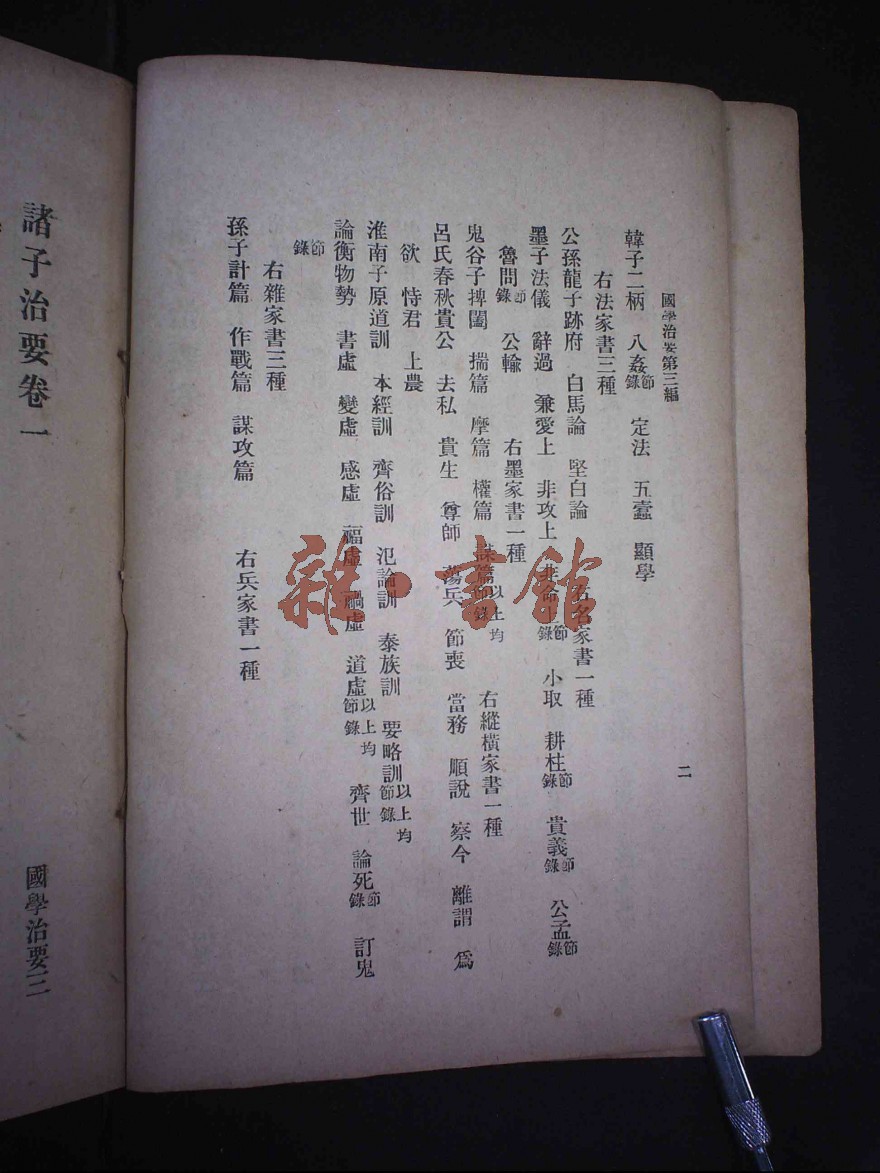 國學治要第三編
二
韓子二柄　八姦節錄　定法　五蠹　顯學
右法家書三種
公孫龍子跡府　白馬論　堅白論　右名家書一種
墨子法儀　辭過　兼愛上　非攻上　非命上節錄　小取　耕柱節錄　貴義節錄　公孟節錄
魯問節錄　公輸　右墨家書一種
鬼谷子捭闔　揣篇　摩篇　權篇　謀篇以上均節錄　右縱橫家書一種
呂氏春秋貴公　去私　貴生　尊師　蕩兵　節喪　當務　順說　察今　離謂　爲
欲　恃君　上農
淮南子原道訓　本經訓　齊俗訓　氾論訓　泰族訓　要略訓以上均節錄
論衡物勢　書虛　變虛　感虛　福虛　禍虛　道虛以上均節錄　齊世　論死節錄　訂鬼
節錄
右雜家書三種
孫子計篇　作戰篇　謀攻篇　右兵家書一種
諸子治要卷一
國學治要三
雜·書館